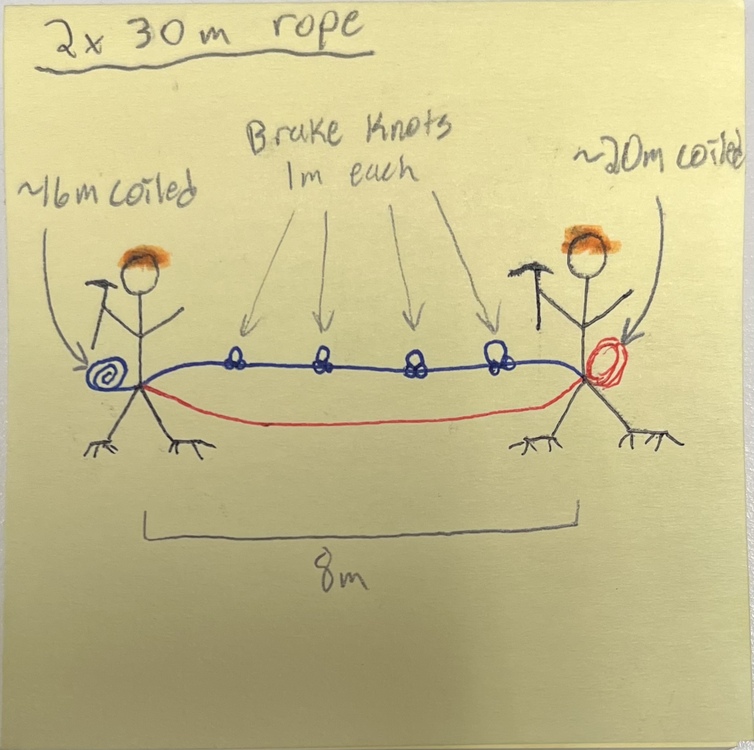 2x 30m rope
Brake Knots
1m each
~16m coiled
~20m coiled
8m